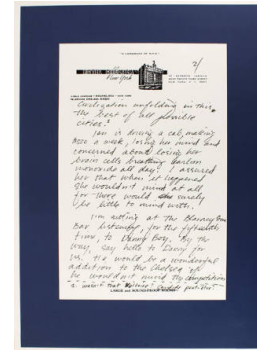 2/
New York
civilization unfolding in this
the best of all possible
cities!
Jan is driving a cab, making
a week, losing her mind and
concerned about losing her
brain cells breathing carbon
monoxide all day. I assured
her that when it happened
she wouldn't mind at all
for there would surely
be little to mind with.
I'm sitting at the Blarney
Bar listening, for the fifteenth
time, to Danny Boy. By the
way, say hello to Larry for
us. He would be a wonderful
addition to the Chelsea if
he wouldn't mind my competition